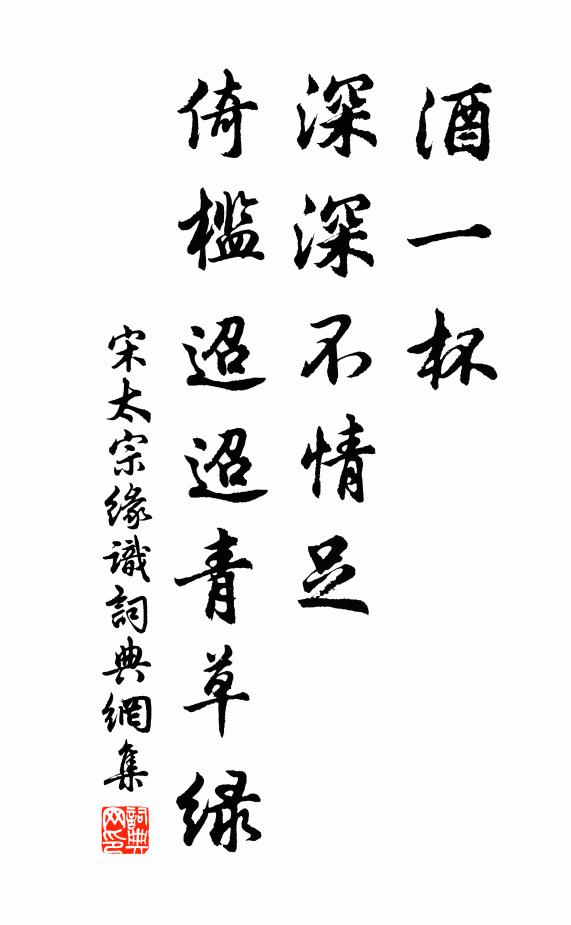 酒一杯
深深不情足
倚檻迢迢青草綠
宋太宗緣識詞典網集
詞典网印